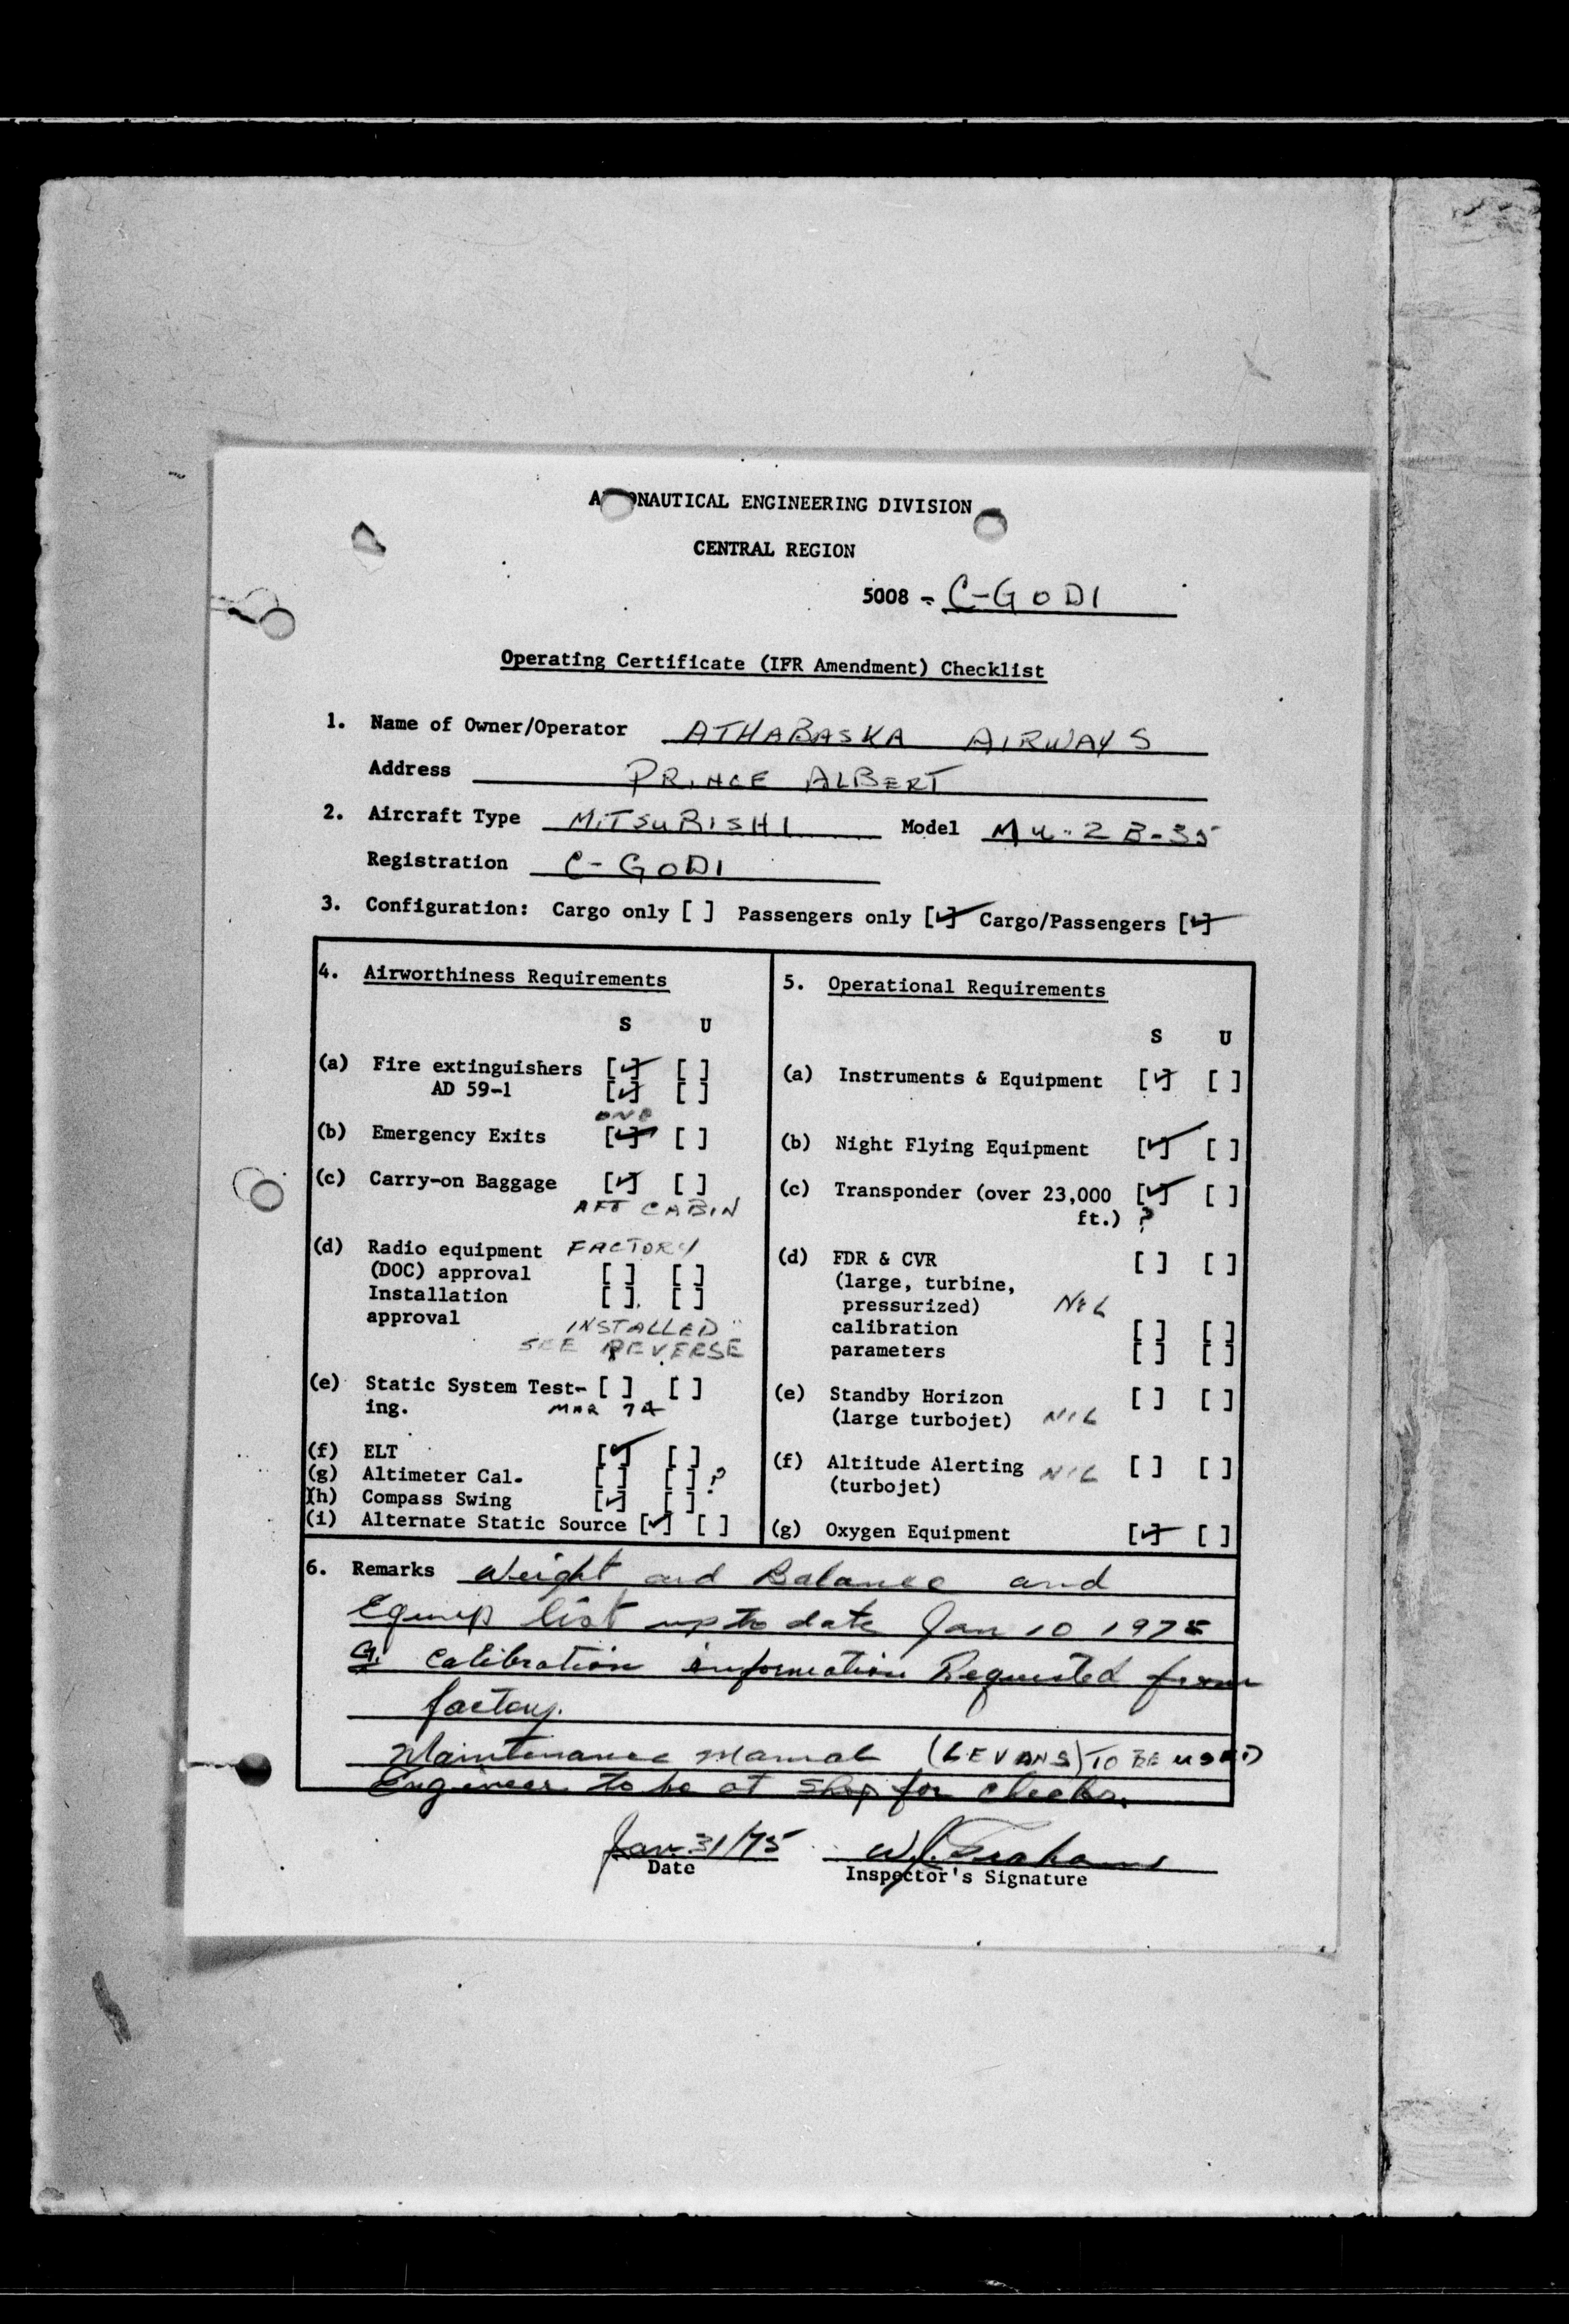 AERONAUTICAL ENGINEERING DIVISION
CENTRAL REGION
5008 - C-GODI
Operating Certificate (IFR Amendment) Checklist
1. Name of Owner/Operator ATHABASKA AIRWAYS
Address PRINCE ALBERT
2. Aircraft Type MITSUBISHI Model MU-2B-35
Registration C-GODI
3. Configuration: Cargo only [ ] Passengers only [✓] Cargo/Passengers [✓]
4. Airworthiness Requirements
S U
(a) Fire extinguishers [✓] [ ]
AD 59-1 [✓] [ ]
ONE
(b) Emergency Exits [✓] [ ]
(c) Carry-on Baggage [✓] [ ]
AFT CABIN
(d) Radio equipment FACTORY
(DOC) approval [ ] [ ]
Installation [ ] [ ]
approval
INSTALLED
SEE REVERSE
(e) Static System Test- [ ] [ ]
ing. MAR 74
(f) ELT [✓] [ ]
(g) Altimeter Cal. [ ] [ ] ?
(h) Compass Swing [✓] [ ]
(i) Alternate Static Source [✓] [ ]
5. Operational Requirements
S U
(a) Instruments & Equipment [✓] [ ]
(b) Night Flying Equipment [✓] [ ]
(c) Transponder (over 23,000 [✓] [ ]
ft.) ?
(d) FDR & CVR [ ] [ ]
(large, turbine,
pressurized) NIL
calibration [ ] [ ]
parameters [ ] [ ]
(e) Standby Horizon [ ] [ ]
(large turbojet) NIL
(f) Altitude Alerting NIL [ ] [ ]
(turbojet)
(g) Oxygen Equipment [✓] [ ]
6. Remarks Weight and Balance and
Equip list up to date Jan 10 1975
G. Calibration information Requested from
factory.
Maintenance Manual (LEVANS) TO BE USED
Engineer to be at shop for checks.
Jan 31/75
Date
Inspector's Signature